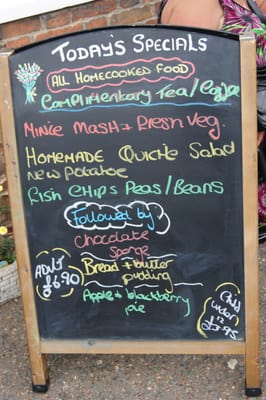 TODAY'S SPECIALS
ALL HOMECOOKED FOOD
Complimentary Tea/Coffee
Mince Mash + Fresh Veg.
HOMEMADE Quiche Salad
New potatoe
Fish Chips Peas/Beans
Followed by
Chocolate
Sponge
Bread + butter
pudding
Apple + blackberry
pie
ADULT
£6.90
Child
under
12
£3.95